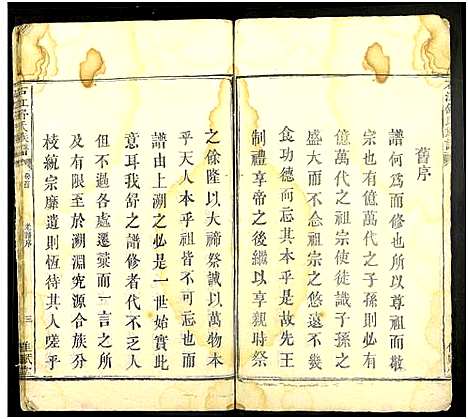 舊序
譜何為而修也所以尊祖而敬
宗也有億萬代之子孫則有
億萬代之祖宗使徒識子孫之
盛大而不念祖宗之悠遠不幾
食功德而忘其本乎是故先王
制禮享帝之後繼以享親時祭
之餘隆以大禘祭誠以萬物本
乎天人本乎祖皆不可忘也
譜由上溯之必是一世始實此
意耳我舒之譜修者代不乏人
但不過各處遷蒙而一言之所
及有限至於溯淵究源令族分
枝統宗廉遺則恆待其人嗟乎
卷首
老譜序
三